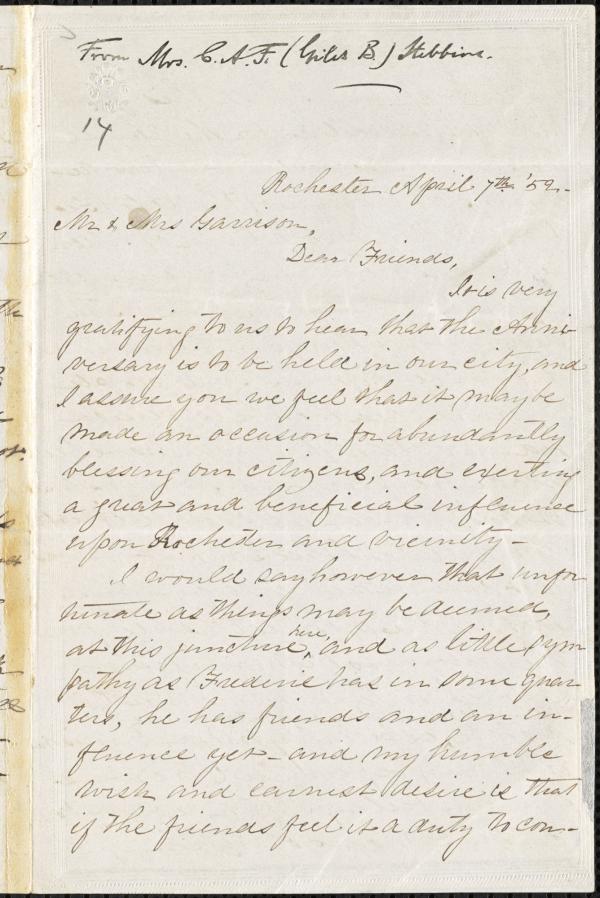 From Mrs. C. A. F. (Giles B.) Stebbins.
14
Rochester April 7th '52-
Mr & Mrs Garrison,
Dear Friends,
It is very
gratifying to us to hear that the Anni-
versary is to be held in our city, and
I assure you we feel that it may be
made an occasion for abundantly
blessing our citizens, and exerting
a great and beneficial influence
upon Rochester and vicinity-
I would say however that unfor
tunate as things may be deemed,
at this juncture here, and as little sym
pathy as Frederic has in some quar
ters, he has friends and an in-
fluence yet - and my humble
wish and earnest desire is that
if the friends feel it a duty to con-